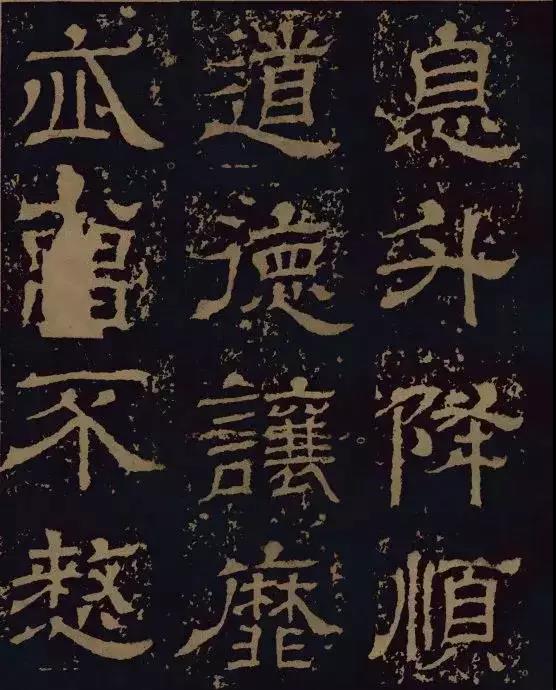 息升降順
道德讓靡
亦不